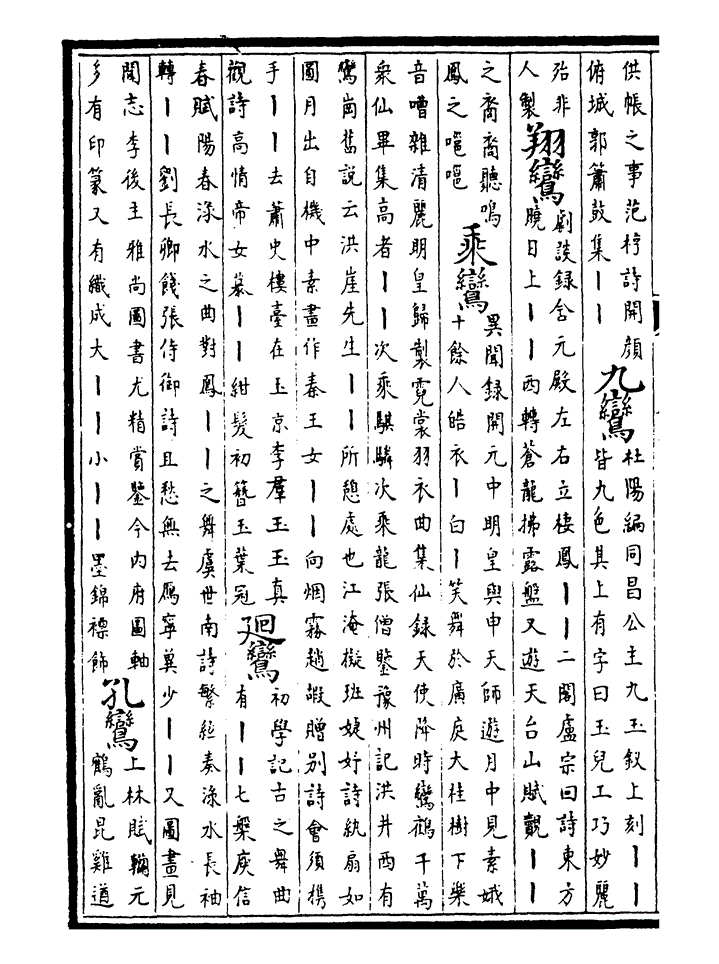 供帳之事范梈詩開顔
俯城郭簫鼓集丨丨
九鸞
杜陽編同昌公主九玉釵上刻丨丨
皆九色其上有字曰玉兒工巧妙麗
殆非
人製
翔鸞
劇談録含元殿左右立棲鳳丨丨二閣盧宗回詩東方
曉日上丨丨西轉蒼龍拂露盤又遊天台山賦覿丨丨
之裔裔聽鳴
鳳之嗈嗈
乘鸞
異聞録開元中明皇與申天師遊月中見素娥
十餘人皓衣丨白丨笑舞於廣庭大桂樹下樂
音嘈雜清麗明皇歸製霓裳羽衣曲集仙録天使降時鸞鶴千萬
衆仙畢集高者丨丨次乘騏驎次乘龍張僧鑒豫州記洪井西有
鸞崗舊説云洪崖先生丨丨所憩處也江淹擬班婕妤詩紈扇如
圓月出自機中素畫作秦王女丨丨向烟霧趙嘏贈別詩會須携
手丨丨去蕭史樓臺在玉京李羣玉玉真
觀詩高情帝女慕丨丨紺髮初簪玉葉冠
廻鸞
初學記古之舞曲
有丨丨七槃庾信
春賦陽春淥水之曲對鳳丨丨之舞虞世南詩繁絃奏淥水長袖
轉丨丨劉長卿餞張侍御詩且愁無去鴈寧冀少丨丨又圖畫見
聞志李後主雅尚圖書尤精賞鑒今内府圖軸
多有印篆又有織成大丨丨小丨丨墨錦褾飾
孔鸞
上林賦鞠元
鶴亂昆雞遒